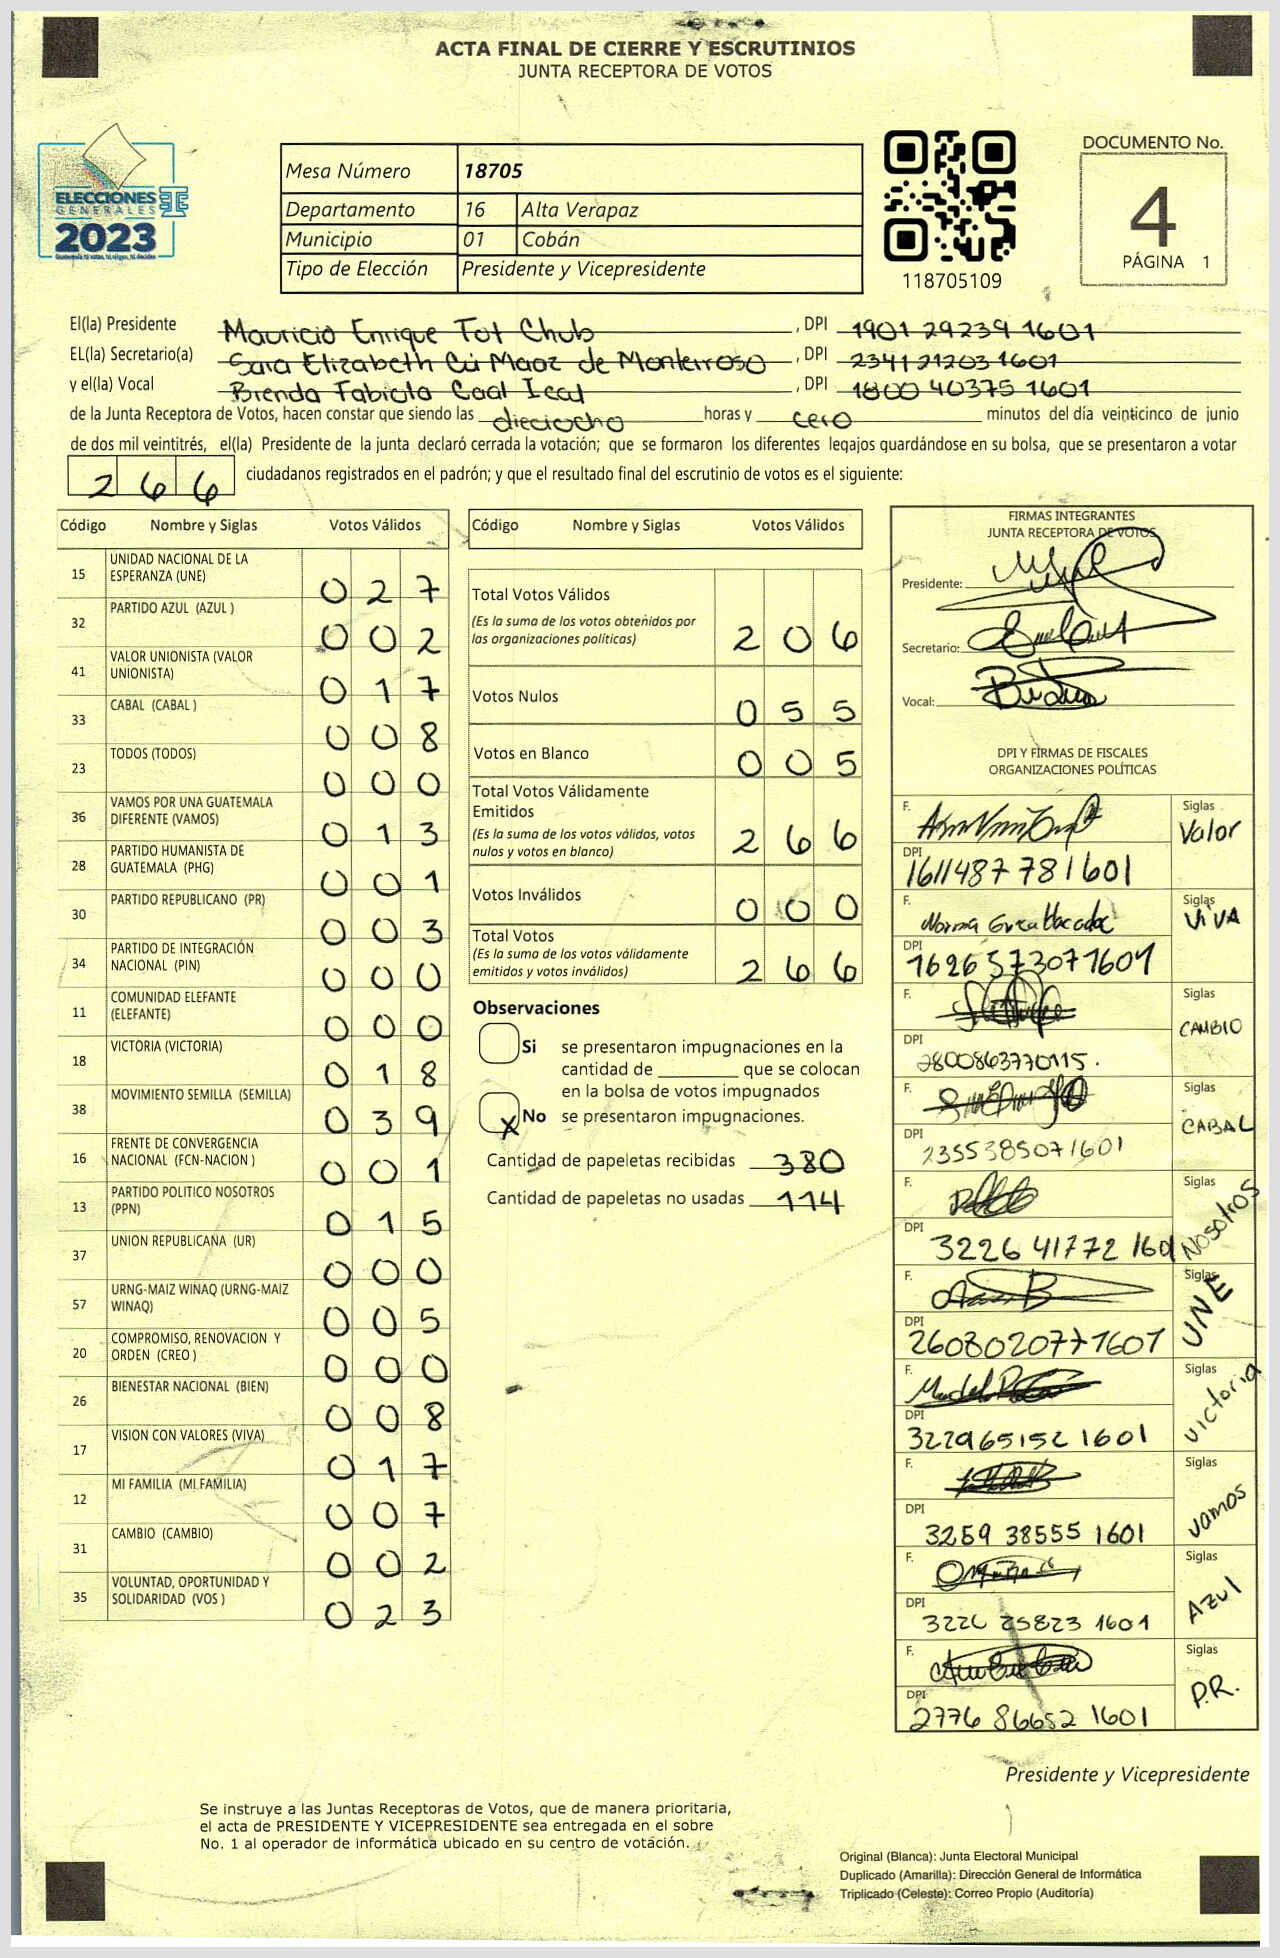 ACTA FINAL DE CIERRE Y ESCRUTINIOS
JUNTA RECEPTORA DE VOTOS
ELECCIONES
GENERALES
2023
Mesa Número 18705
Departamento 16 Alta Verapaz
Municipio 01 Cobán
Tipo de Elección Presidente y Vicepresidente
118705109
DOCUMENTO No.
4
PÁGINA 1
El(la) Presidente Mauricio Enrique Tot Chub , DPI 1901 29239 1601
EL(la) Secretario(a) Sara Elizabeth Cú Maaz de Monterroso , DPI 2341 21203 1601
y el(la) Vocal Brenda Fabiola Caal Ical , DPI 1800 40375 1601
de la Junta Receptora de Votos, hacen constar que siendo las dieciocho horas y cero minutos del día veinticinco de junio
de dos mil veintitrés, el(la) Presidente de la junta declaró cerrada la votación; que se formaron los diferentes legajos guardándose en su bolsa, que se presentaron a votar
266 ciudadanos registrados en el padrón; y que el resultado final del escrutinio de votos es el siguiente:
Código Nombre y Siglas Votos Válidos
15 UNIDAD NACIONAL DE LA ESPERANZA (UNE) 027
32 PARTIDO AZUL (AZUL ) 002
41 VALOR UNIONISTA (VALOR UNIONISTA) 017
33 CABAL (CABAL ) 008
23 TODOS (TODOS) 000
36 VAMOS POR UNA GUATEMALA DIFERENTE (VAMOS) 013
28 PARTIDO HUMANISTA DE GUATEMALA (PHG) 001
30 PARTIDO REPUBLICANO (PR) 003
34 PARTIDO DE INTEGRACIÓN NACIONAL (PIN) 000
11 COMUNIDAD ELEFANTE (ELEFANTE) 000
18 VICTORIA (VICTORIA) 018
38 MOVIMIENTO SEMILLA (SEMILLA) 039
16 FRENTE DE CONVERGENCIA NACIONAL (FCN-NACION ) 001
13 PARTIDO POLITICO NOSOTROS (PPN) 015
37 UNION REPUBLICANA (UR) 000
57 URNG-MAIZ WINAQ (URNG-MAIZ WINAQ) 005
20 COMPROMISO, RENOVACION Y ORDEN (CREO ) 000
26 BIENESTAR NACIONAL (BIEN) 008
17 VISION CON VALORES (VIVA) 017
12 MI FAMILIA (MI FAMILIA) 007
31 CAMBIO (CAMBIO) 002
35 VOLUNTAD, OPORTUNIDAD Y SOLIDARIDAD (VOS ) 023
Código Nombre y Siglas Votos Válidos
Total Votos Válidos
(Es la suma de los votos obtenidos por
las organizaciones políticas) 206
Votos Nulos 055
Votos en Blanco 005
Total Votos Válidamente
Emitidos
(Es la suma de los votos válidos, votos
nulos y votos en blanco) 266
Votos Inválidos 000
Total Votos
(Es la suma de los votos válidamente
emitidos y votos inválidos) 266
Observaciones
Si se presentaron impugnaciones en la
cantidad de ________ que se colocan
en la bolsa de votos impugnados
X No se presentaron impugnaciones.
Cantidad de papeletas recibidas 380
Cantidad de papeletas no usadas 114
FIRMAS INTEGRANTES
JUNTA RECEPTORA DE VOTOS
Presidente:
Secretario:
Vocal:
DPI Y FIRMAS DE FISCALES
ORGANIZACIONES POLÍTICAS
F. Siglas Valor
DPI 1611487 781601
F. Norma Siglas VIVA
DPI 1626573071601
F. Siglas CAMBIO
DPI 2800863770115.
F. Siglas CABAL
DPI 2355385071601
F. Siglas Nosotros
DPI 3226 41772 1601
F. Siglas UNE
DPI 2608020771601
F. Siglas Victoria
DPI 3229651521601
F. Siglas Vamos
DPI 3259 38555 1601
F. Siglas Azul
DPI 3226 25823 1601
F. Siglas P.R.
DPI 2776 86652 1601
Presidente y Vicepresidente
Se instruye a las Juntas Receptoras de Votos, que de manera prioritaria,
el acta de PRESIDENTE Y VICEPRESIDENTE sea entregada en el sobre
No. 1 al operador de informática ubicado en su centro de votación.
Original (Blanca): Junta Electoral Municipal
Duplicado (Amarilla): Dirección General de Informática
Triplicado (Celeste): Correo Propio (Auditoría)